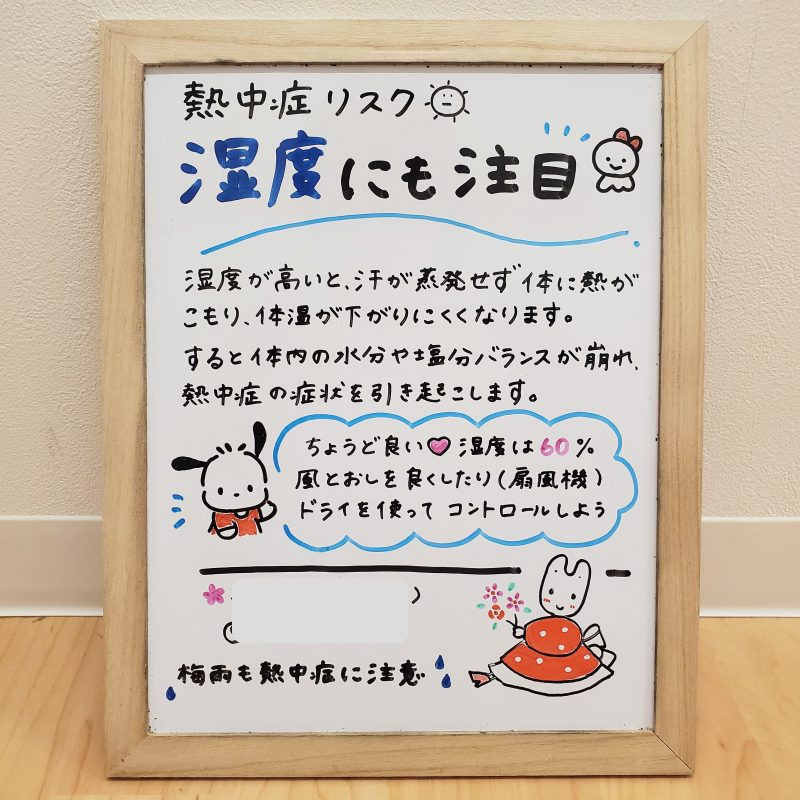 熱中症リスク
湿度にも注目
湿度が高いと、汗が蒸発せず体に熱が
こもり、体温が下がりにくくなります。
すると体内の水分や塩分バランスが崩れ、
熱中症の症状を引き起こします。
ちょうど良い♥湿度は60%
風とおしを良くしたり(扇風機)
ドライを使って コントロールしよう
梅雨も熱中症に注意